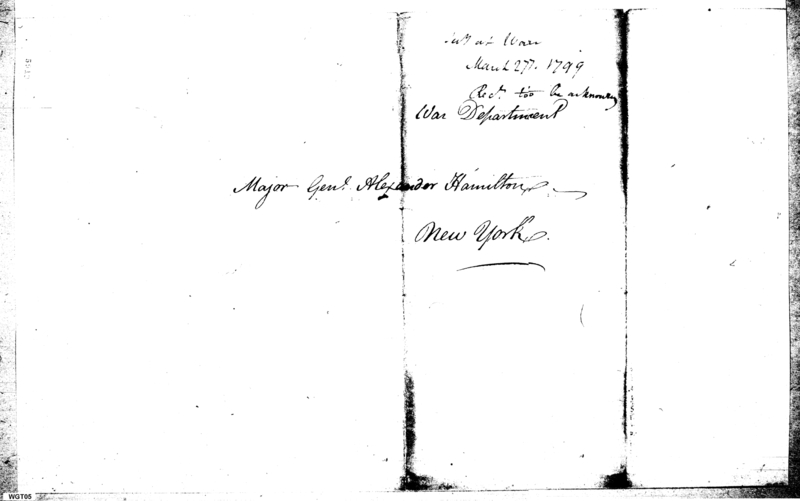 at War
March 27th. 1799
Recd. too be acknowy
War Department
Major Genl. Alexander Hamilton
New York.
WGT05